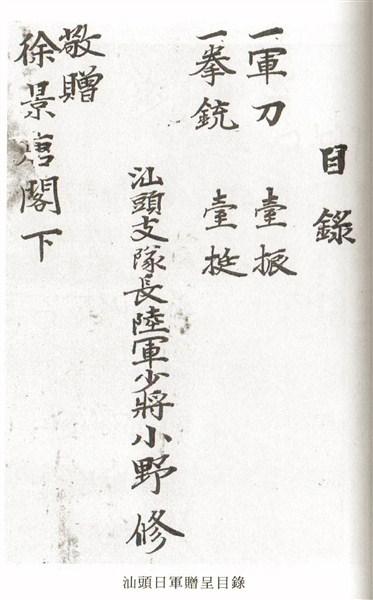 目錄
一軍刀 壹振
一拳銃 壹挺
汕頭支隊長陸軍少將小野修
敬贈
徐景唐閣下
汕頭日軍贈呈目錄